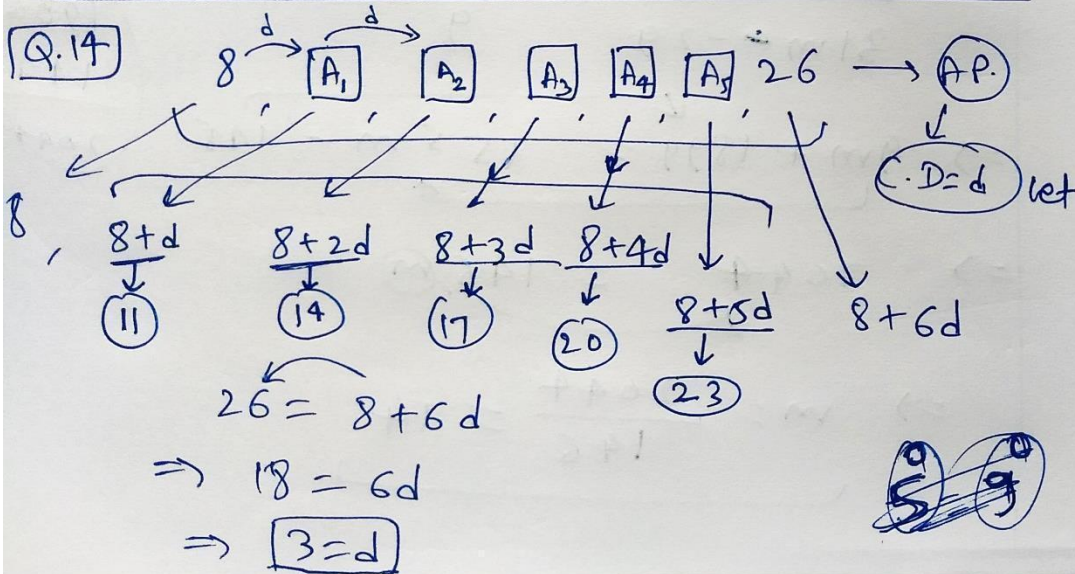 Q.14 8 d A1 d A2 A3 A4 A5 26 → A.P.
, , , , , ,
C.D=d let
8 , 8+d 8+2d 8+3d 8+4d 8+5d 8+6d
11 14 17 20 23
26 = 8+6d
⇒ 18 = 6d
⇒ 3=d